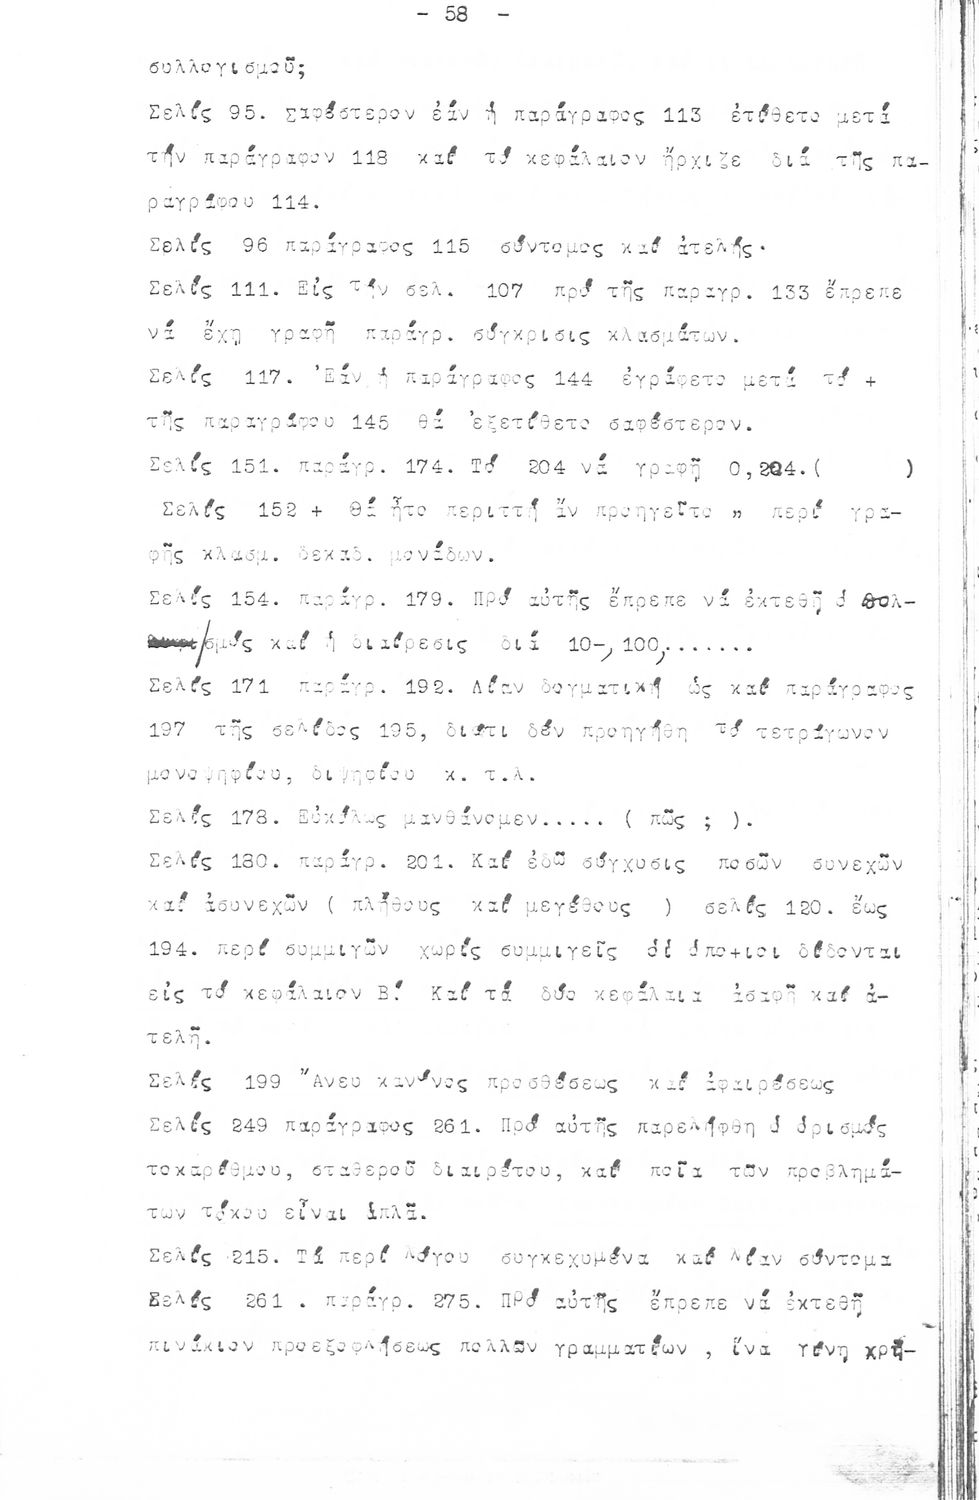 - 58 -
συλλογισμοῦ;
Σελίς 95. Σαφέστερον ἐάν ἡ παράγραφος 113 ἐτίθετο μετά
τήν παράγραφον 118 καί τό κεφάλαιον ἤρχιζε διά τῆς πα-
ραγράφου 114.
Σελίς 96 παράγραφος 115 σύντομος καί ἀτελής·
Σελίς 111. Εἰς τήν σελ. 107 πρό τῆς παραγρ. 133 ἔπρεπε
νά ἔχῃ γραφῆ παράγρ. σύγκρισις κλασμάτων.
Σελίς 117. Ἐάν ἡ παράγραφος 144 ἐγράφετο μετά τό +
τῆς παραγράφου 145 θά ἐξετίθετο σαφέστερον.
Σελίς 151. παράγρ. 174. Τό 204 νά γραφῆ 0,204.( )
Σελίς 152 + θά ἦτο περιττή ἄν προηγεῖτο » περί γρα-
φῆς κλασμ. δεκαδ. μονάδων.
Σελίς 154. παράγρ. 179. Πρό αὐτῆς ἔπρεπε νά ἐκτεθῆ ὁ πολ-
σμός καί ἡ διαίρεσις διά 10-, 100,.......
Σελίς 171 παράγρ. 192. Λίαν δογματική ὡς καί παράγραφος
197 τῆς σελίδος 195, διότι δέν προηγήθη τό τετράγωνον
μονοψηφίου, διψηφίου κ. τ.λ.
Σελίς 178. Εὐκόλως μανθάνομεν..... ( πῶς ; ).
Σελίς 180. παράγρ. 201. Καί ἐδῶ σύγχυσις ποσῶν συνεχῶν
καί ἀσυνεχῶν ( πλήθους καί μεγέθους ) σελίς 120. ἕως
194. περί συμμιγῶν χωρίς συμμιγεῖς οἱ ὁπο+ιοι δίδονται
εἰς τό κεφάλαιον Β! Καί τά δύο κεφάλαια ἀσαφῆ καί ἀ-
τελῆ.
Σελίς 199 Ἄνευ κανόνος προσθέσεως καί ἀφαιρέσεως
Σελίς 249 παράγραφος 261. Πρό αὐτῆς παρελήφθη ὁ ὁρισμός
τοκαρίθμου, σταθεροῦ διαιρέτου, καί ποῖα τῶν προβλημά-
των τόκου εἶναι ἁπλᾶ.
Σελίς 215. Τά περί λόγου συγκεχυμένα καί λίαν σύντομα
Σελίς 261 . παράγρ. 275. Πρό αὐτῆς ἔπρεπε νά ἐκτεθῆ
πινάκιον προεξοφλήσεως πολλῶν γραμματίων , ἵνα γίνη χρή-